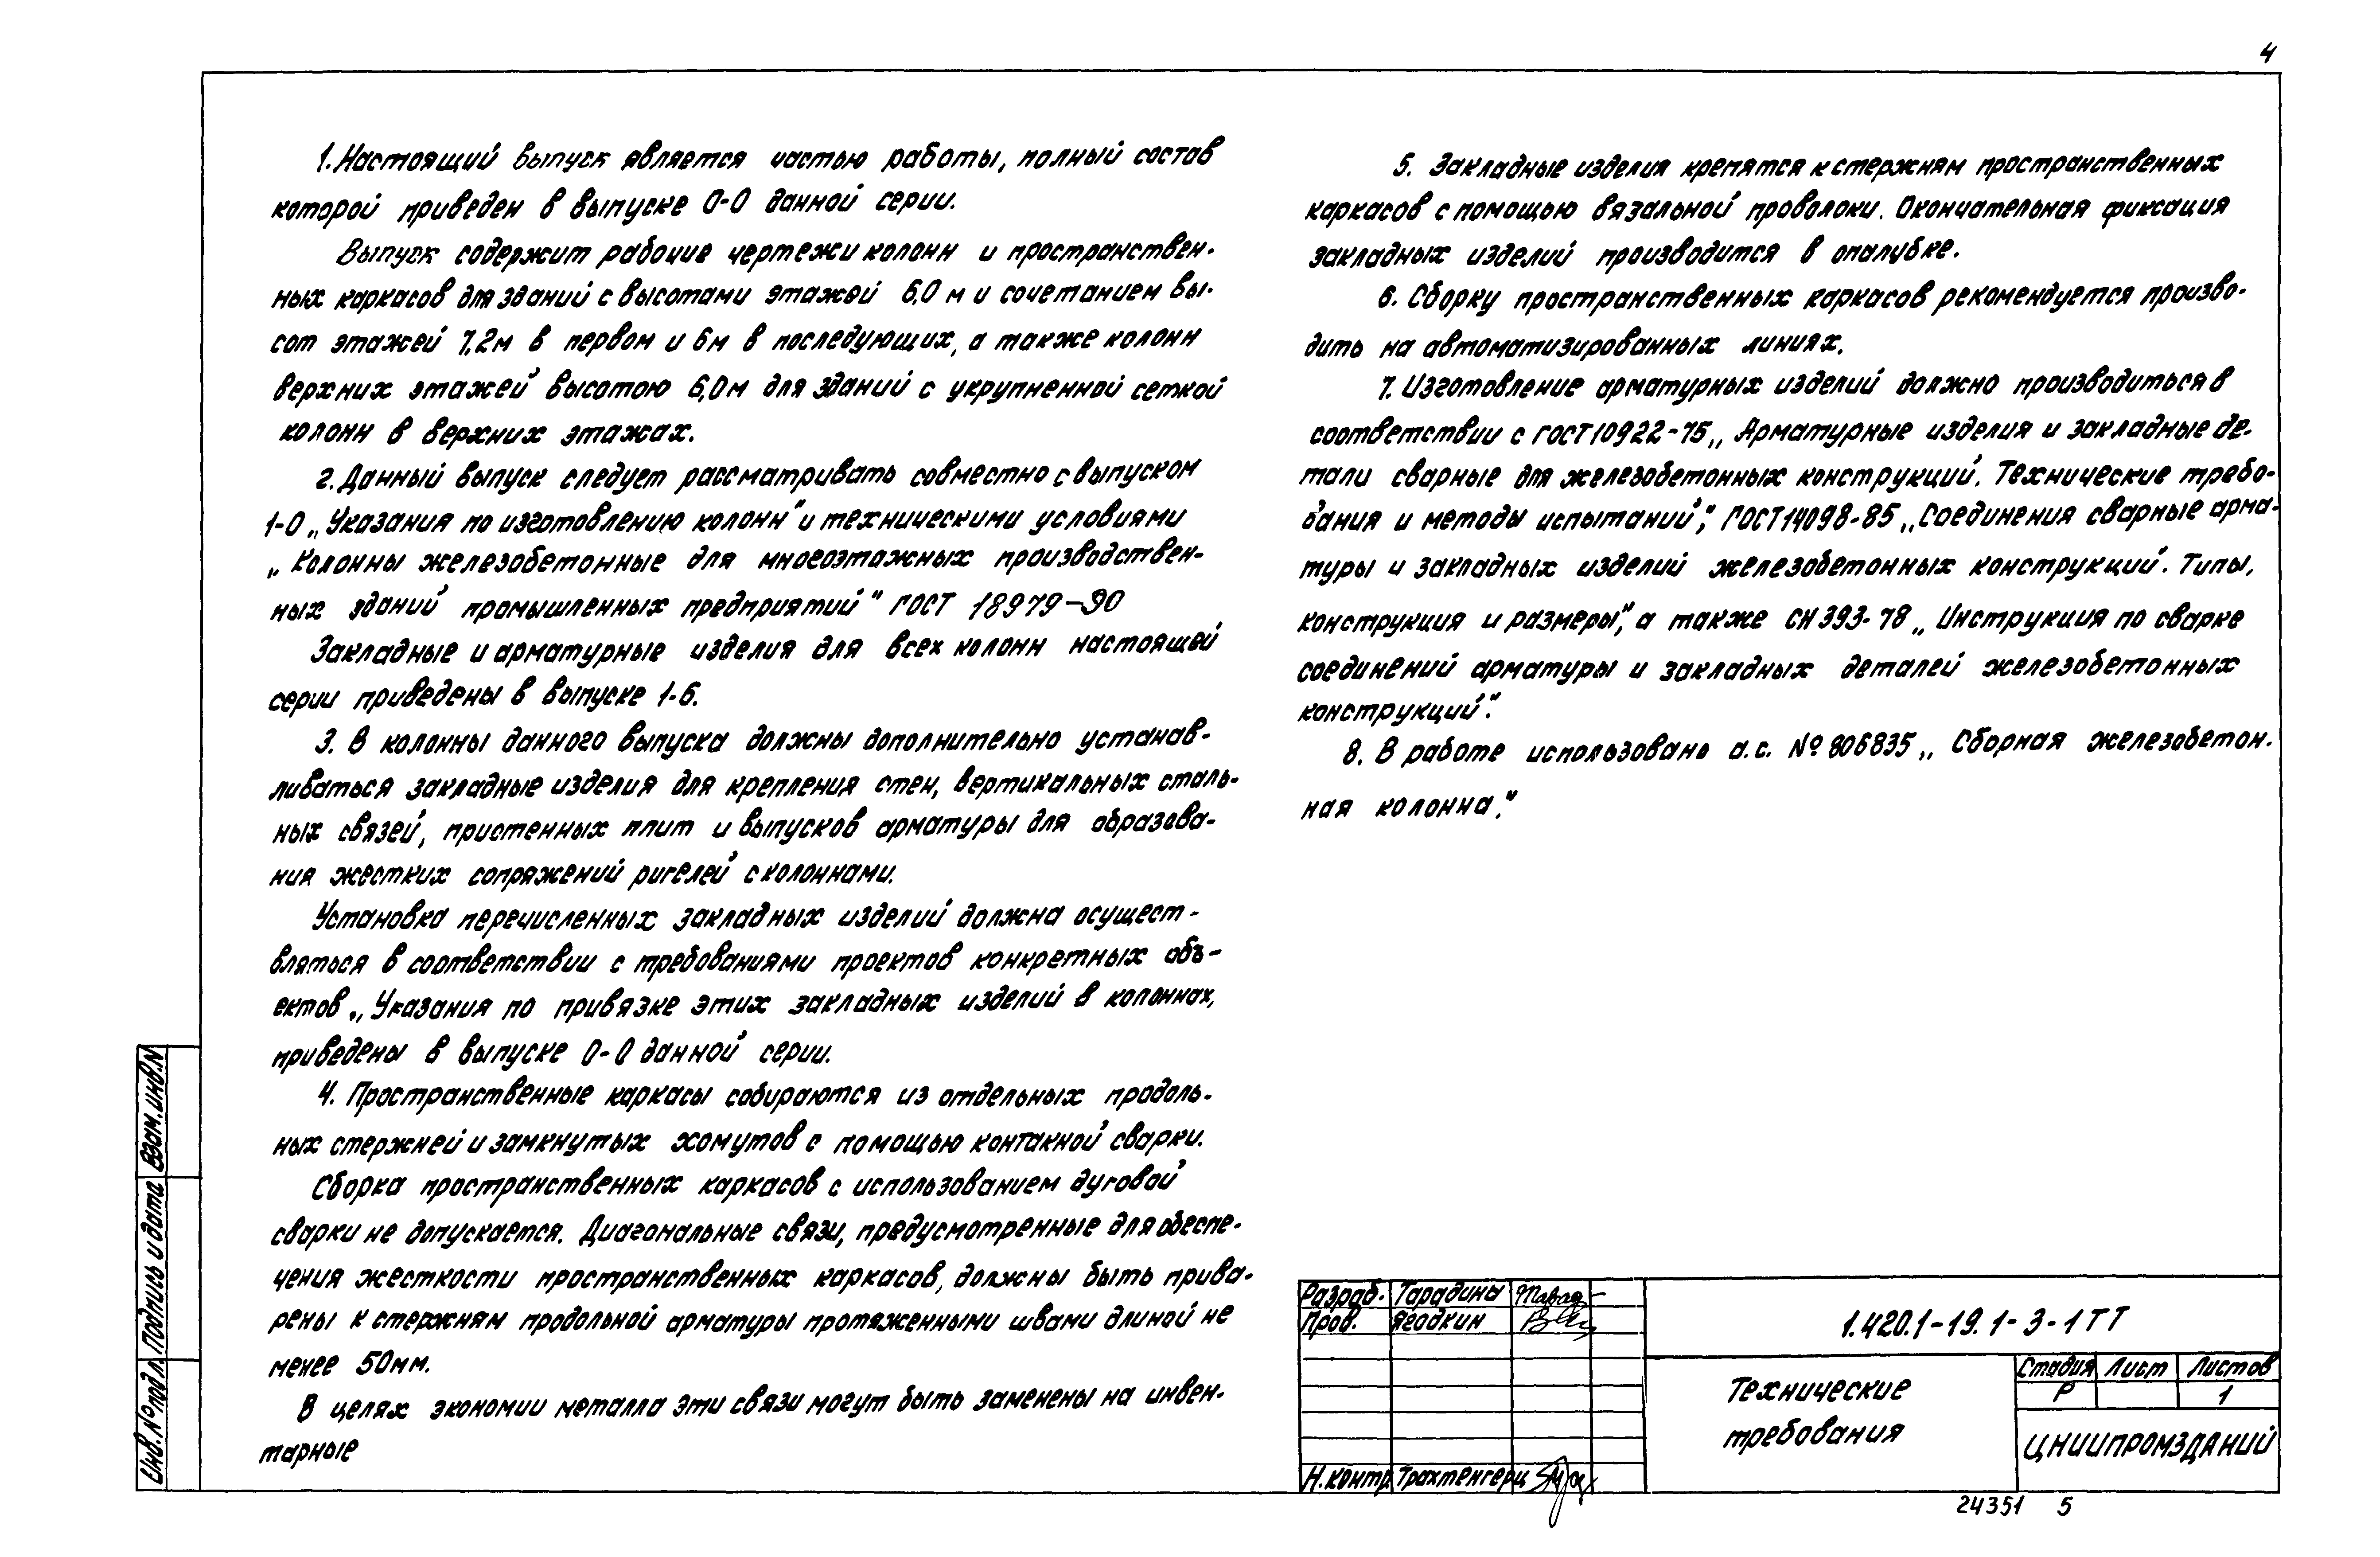 4
1. Настоящий выпуск является частью работы, полный состав
которой приведен в выпуске 0-0 данной серии.
Выпуск содержит рабочие чертежи колонн и пространствен-
ных каркасов для зданий с высотами этажей 6,0 м и сочетанием вы-
сот этажей 7,2м в первом и 6м в последующих, а также колонн
верхних этажей высотою 6,0м для зданий с укрупненной сеткой
колонн в верхних этажах.
2. Данный выпуск следует рассматривать совместно с выпуском
1-0 „Указания по изготовлению колонн" и техническими условиями
„Колонны железобетонные для многоэтажных производствен-
ных зданий промышленных предприятий" ГОСТ 18979-90
Закладные и арматурные изделия для всех колонн настоящей
серии приведены в выпуске 1-6.
3. В колонны данного выпуска должны дополнительно устанав-
ливаться закладные изделия для крепления стен, вертикальных сталь-
ных связей, пристенных плит и выпусков арматуры для образова-
ния жестких сопряжений ригелей с колоннами.
Установка перечисленных закладных изделий должна осущест-
вляться в соответствии с требованиями проектов конкретных объ-
ектов „Указания по привязке этих закладных изделий в колоннах,
приведены в выпуске 0-0 данной серии.
4. Пространственные каркасы собираются из отдельных продоль-
ных стержней и замкнутых хомутов с помощью контакной сварки.
Сборка пространственных каркасов с использованием дуговой
сварки не допускается. Диагональные связи, предусмотренные для обеспе-
чения жесткости пространственных каркасов, должны быть прива-
рены к стержням продольной арматуры протяженными швами длиной не
менее 50мм.
В целях экономии металла эти связи могут быть заменены на инвен-
тарные
5. Закладные изделия крепятся к стержням пространственных
каркасов с помощью вязальной проволоки. Окончательная фиксация
закладных изделий производится в опалубке.
6. Сборку пространственных каркасов рекомендуется произво-
дить на автоматизированных линиях.
7. Изготовление арматурных изделий должно производиться в
соответствии с ГОСТ 10922-75 „Арматурные изделия и закладные де-
тали сварные для железобетонных конструкций. Технические требо-
вания и методы испытаний", ГОСТ 14098-85 „Соединения сварные арма-
туры и закладных изделий железобетонных конструкций. Типы,
конструкция и размеры", а также СН 393-78 „Инструкция по сварке
соединений арматуры и закладных деталей железобетонных
конструкций".
8. В работе использовано а.с. № 806835 „Сборная железобетон-
ная колонна."
Взам. инв. N
Подпись и дата
Инв. № подл.
Разраб. Тарадина
Пров. Ягодкин
Н.контр. Трахтенгерц
1.420.1-19.1-3-1ТТ
Технические
требования
Стадия Лист Листов
Р 1
ЦНИИПРОМЗДАНИЙ
24351 5